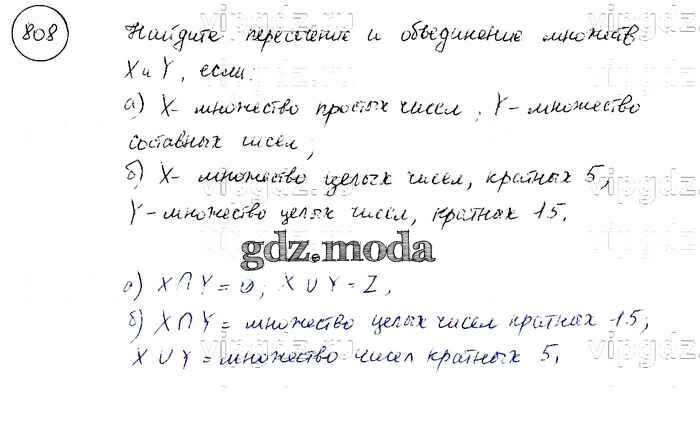 808
Найдите пересечение и объединение множеств
X и Y, если:
а) X- множество простых чисел, Y- множество
составных чисел;
б) X- множество целых чисел, кратных 5,
Y- множество целых чисел, кратных 15.
gdz.moda
а) X∩Y=∅; X∪Y=Z,
б) X∩Y= множество целых чисел кратных 15;
X∪Y= множество чисел кратных 5.
vipgdz
vipgdz
vipgdz
vipgdz